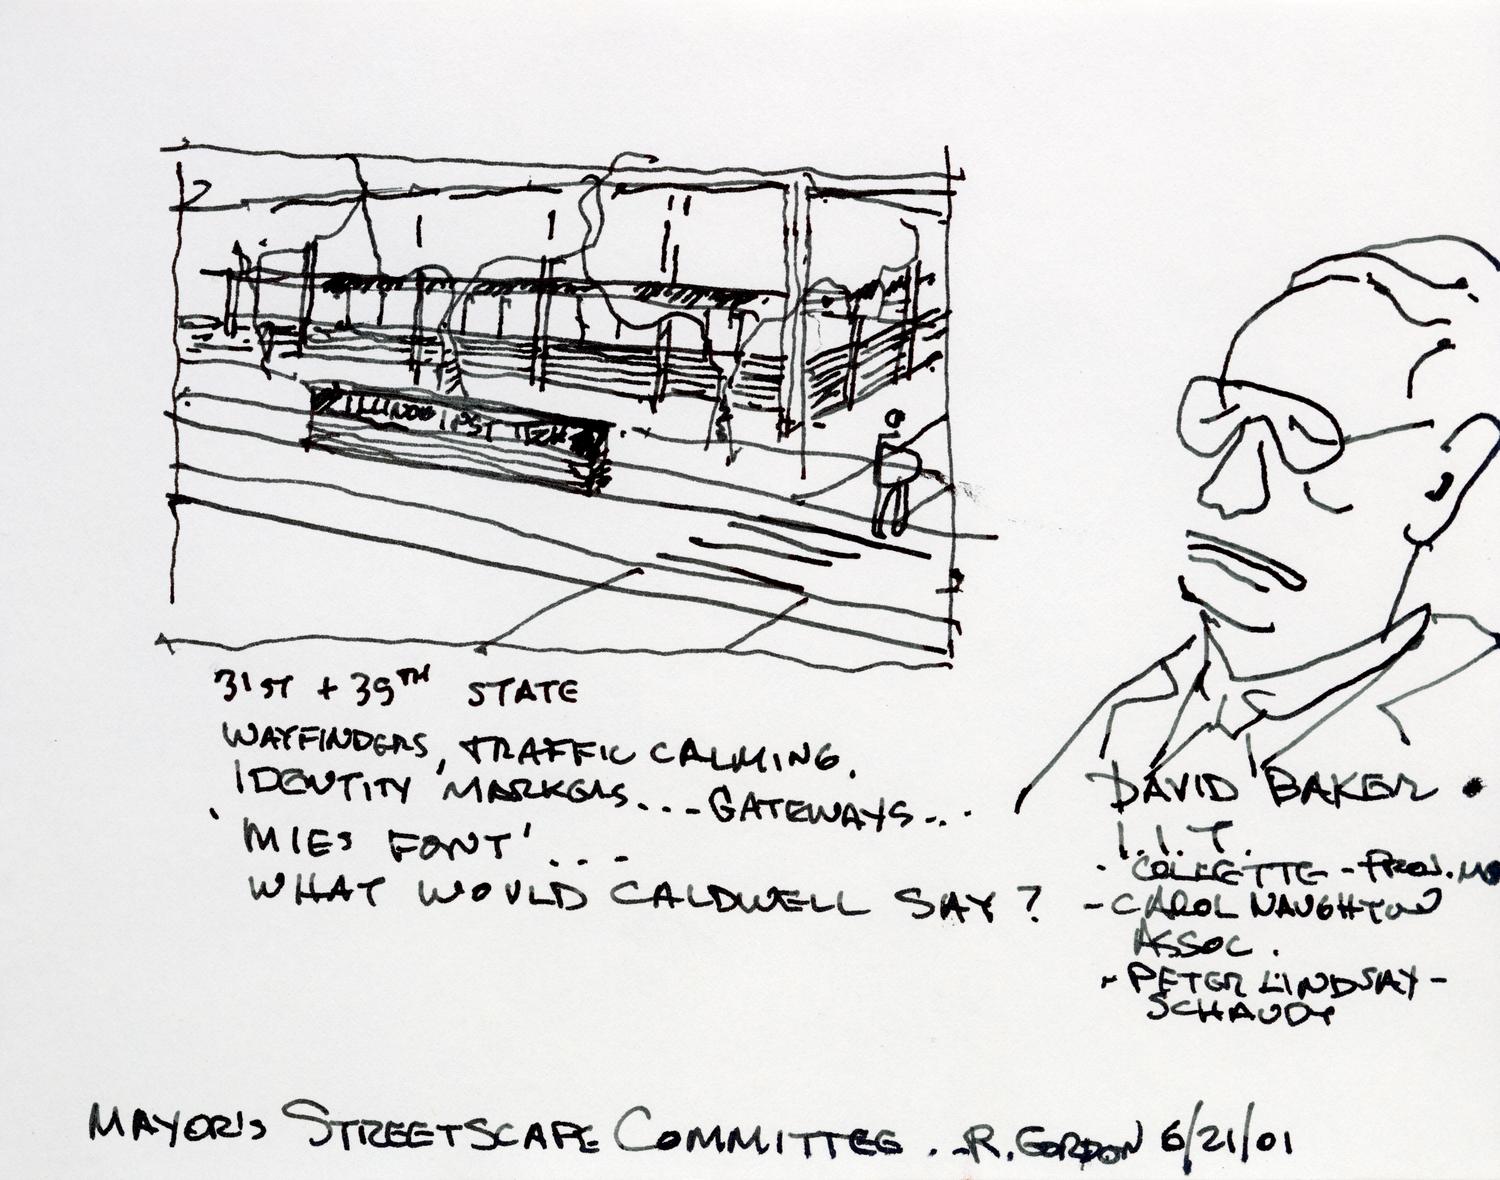 ILLINOIS INST TECH
31ST + 39TH STATE
WAYFINDERS, TRAFFIC CALMING.
IDENTITY MARKERS...-GATEWAYS...
'MIES FONT'...
WHAT WOULD CALDWELL SAY?
DAVID BAKER •
I.I.T.
- COLLETTE - PROJ.
- CAROL NAUGHTON
ASSOC.
- PETER LINDSAY -
SCHAUDT
MAYOR'S STREETSCAPE COMMITTEE ..R. GORDON 6/21/01